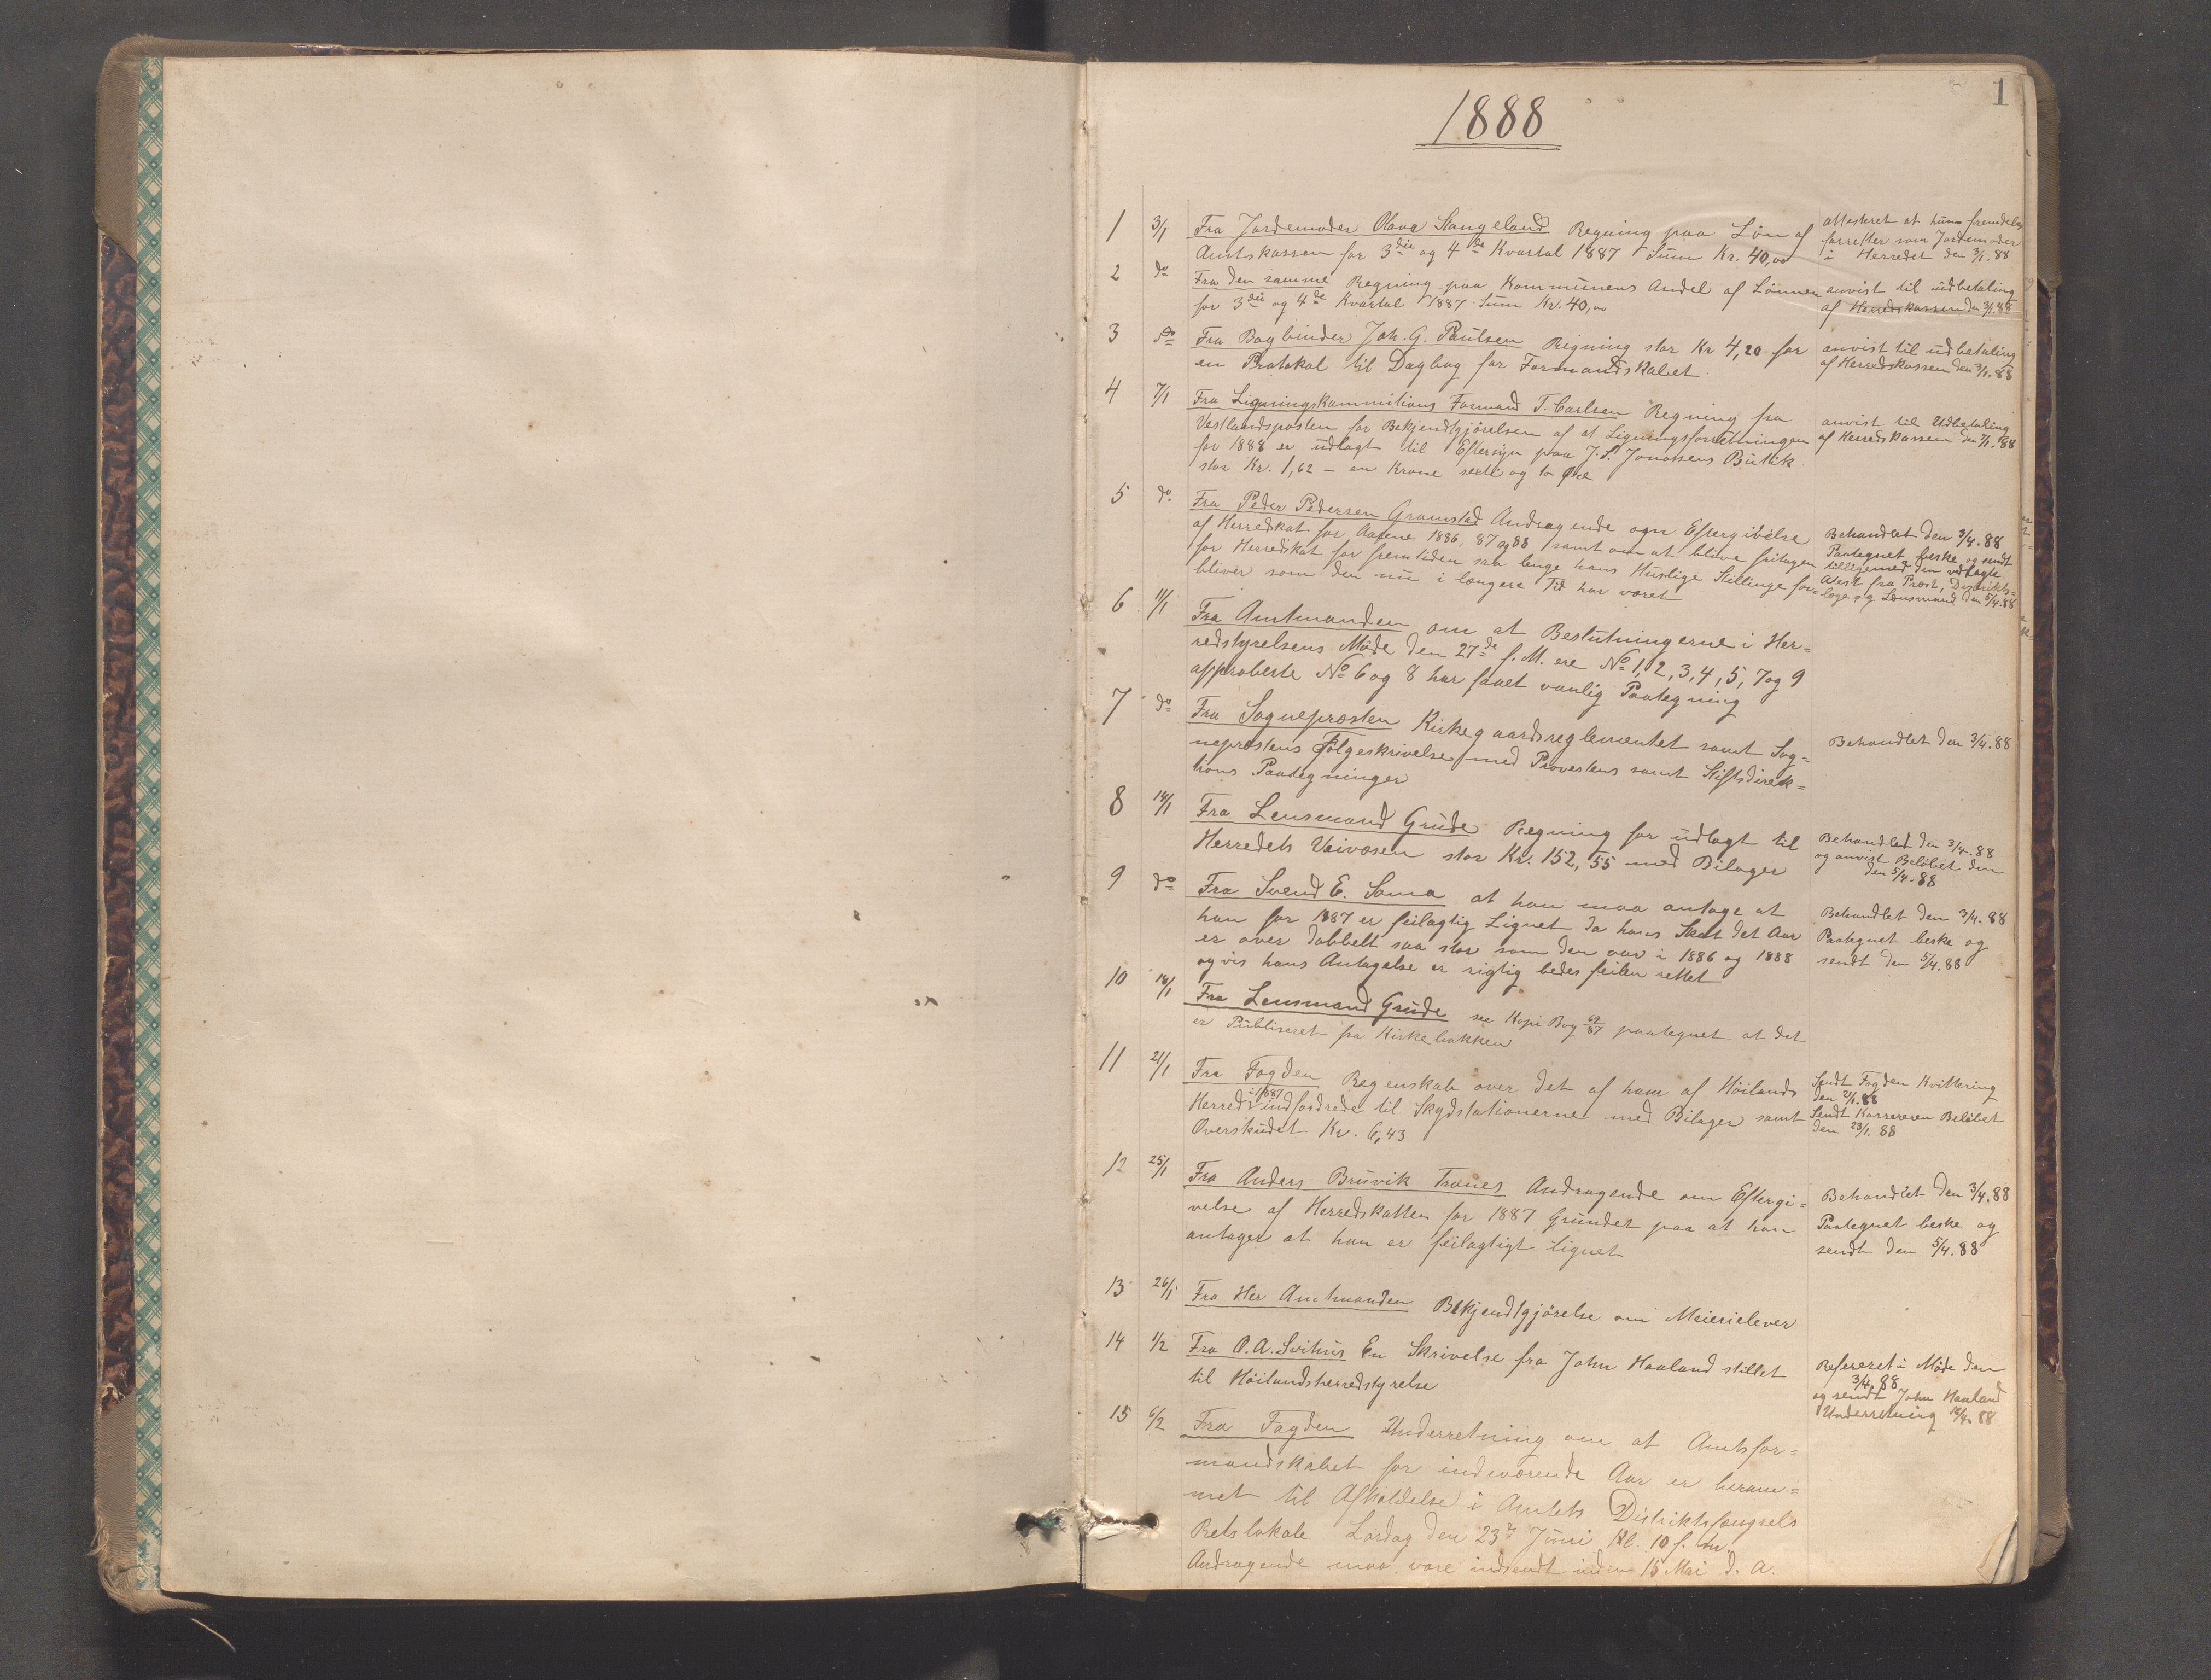 1
1888
1 3/1 Fra Jordemoder Olava Stangeland Regning paa Løn af
Amtskassen for 3die og 4de Kvartal 1887 Sum Kr. 40,00
attesteret at hun fremdeles
forretter som Jordemoder
i Herredet den 3/1.88
2 do Fra den samme Regning paa Kommunens Andel af Lønnen
for 3die og 4de Kvartal 1887 Sum Kr. 40,00
anvist til udbetaling
af Herredskassen den 3/1.88
3 do Fra Bogbinder Joh. G. Paulsen Regning stor Kr 4,20 for
en Protokol til Dagbog for Formandskabet.
anvist til udbetaling
af Herredskassen den 3/1.88
4 7/1 Fra Ligningskommitions Formand T. Carlsen Regning fra
Vestlandsposten for Bekjendtgjørelsen af at Ligningsforretningen
for 1888 er udlagt til Eftersyn paa J. S. Jonassens Butik
stor Kr. 1,62 – en Krone sexti og to Øre
anvist til Udbetaling
af Herredskassen den 7/1.88
5 do. Fra Peder Pedersen Gramstad Andragende om Eftergivelse
af Herredskat for Aarene 1886, 87 og 88 samt om at blive fritagen
for Herredskat for fremtiden saa lenge hans Huslige Stillinge for=
bliver som den nu i længere Tid har været
Behandlet den 3/4.88
Paategnet beske og sendt
tilligemed den vedlagte
Atest fra Præst, Distrikts=
læge og Lensmand den 5/4.88
6 11/1 Fra Amtmanden om at Beslutningerne i Her=
redstyrelsens Møde den 27de f. M. ere No 1, 2, 3, 4, 5, 7 og 9
approberte No 6 og 8 har faaet vanlig Paategning
7 do Fra Sognepræsten Kirkegaardsreglementet samt Sog=
nepræstens Følgeskrivelse med Provestens samt Stiftsdirek=
tions Paategninger
Behandlet den 3/4.88
8 14/1 Fra Lensmand Grude Regning for udlagt til
Herredets Veivæsen stor Kr. 152,55 med Bilager
Behandled den 3/4.88
og anvist Beløbet den
den 5/4.88
9 do Fra Svend E. Soma at han maa antage at
han for 1887 er feilagtig Lignet da hans Skat det Aar
er over dobbelt saa stor som den var i 1886 og 1888
og vis hans Antagelse er rigtig bedes feilen rettet
Behandlet den 3/4.88
Paategnet beske og
sendt den 5/4.88
10 18/1 Fra Lensmand Grude see Kopi Bog 69/87 paategnet at det
er Publiseret fra Kirkebakken
11 21/1 Fra Fogden Regenskab over det af ham af Høilands
Herred i 1887 indfordrede til Skydstationerne med Bilager samt
Overskudet Kr. 6,43
Sendt Fogden Kvittering
den 21/1.88
Sendt Kassereren Beløbet
den 23/1.88
12 25/1 Fra Anders Bruvik Tranes Andragende om Eftergi=
velse af Herredskatten for 1887 Grundet paa at han
antager at han er feilagtigt lignet
Behandlet den 3/4.88
Paategnet beske og
sendt den 5/4.88
13 26/1 Fra Her Amtmanden Bekjendtgjørelse om Meierielever
14 1/2 Fra O. A. Svihus En Skrivelse fra John Haaland stillet
til Høilandsherredstyrelse
Refereret i Møde den
3/4.88
og sendt John Haaland
Underretning 14/4.88
15 6/2 Fra Fogden Underretning om at Amtsfor=
mandskabet for indeværende Aar er beram=
met til Afholdelse i Amtets Distriktsfængsels
Retslokale Lørdag den 23de Juni Kl. 10 f. m.
Andragende maa være indsendt inden 15 Mai d. A.